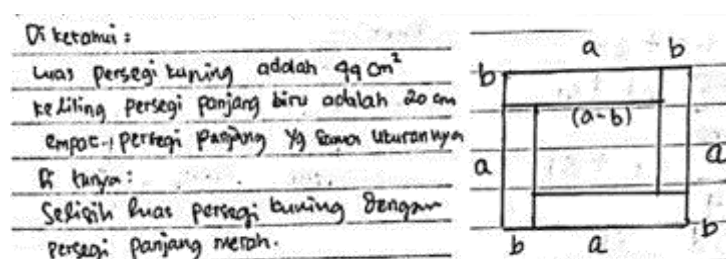 Diketahui:
Luas persegi kuning adalah 49 cm²
keliling persegi panjang biru adalah 20 cm
empat persegi panjang yg sama ukurannya
Di tanya:
Selisih luas persegi kuning dengan
persegi panjang merah.
a b
b
(a-b)
a a
b
b a